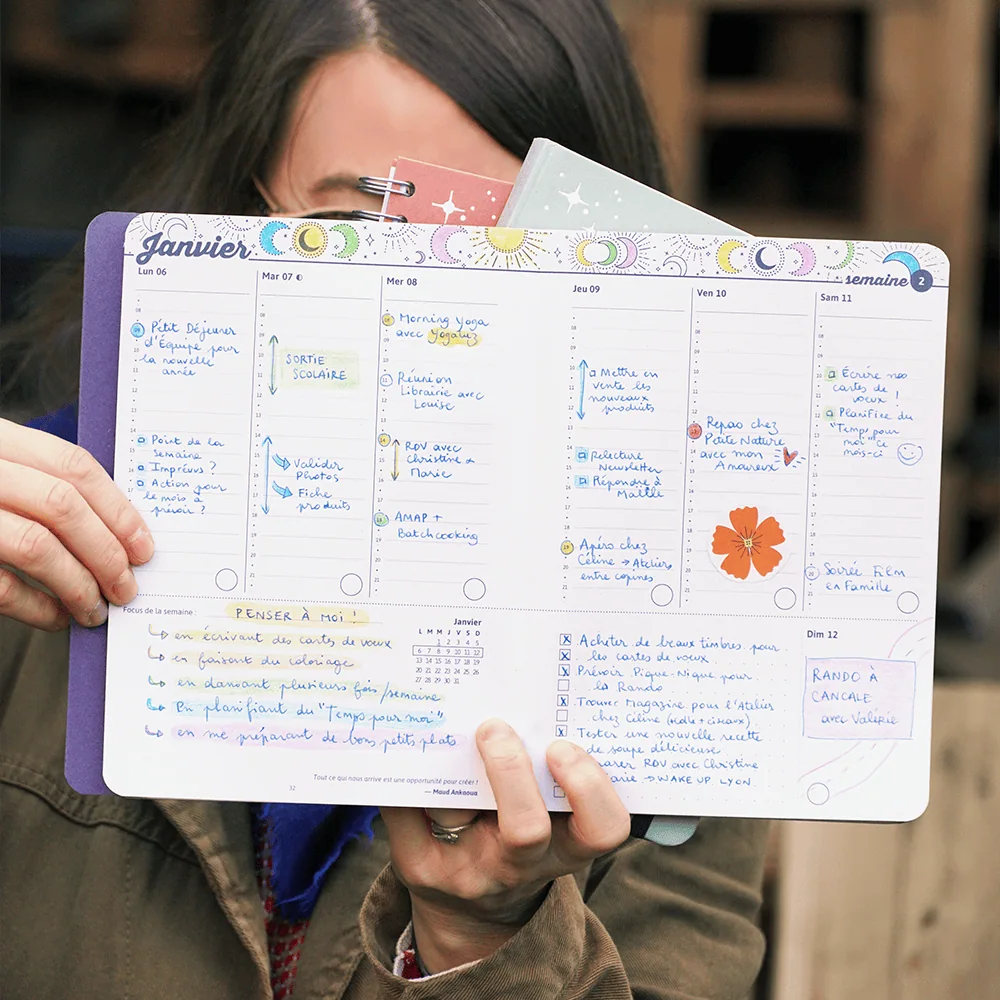 Janvier
semaine 2
Lun 06
Petit Déjeuner
d'Équipe pour
la nouvelle
année
Point de la
semaine
Imprévus ?
Action pour
le mois à
prévoir ?
Mar 07
SORTIE
SCOLAIRE
Valider
Photos
Fiche
produits
Mer 08
Morning Yoga
avec Yogaluz
Réunion
Librairie avec
Louise
RDV avec
Christine &
Marie
AMAP +
Batchcooking
Jeu 09
Mettre en
vente les
nouveaux
produits
Relecture
Newsletter
Répondre à
Maëlle
Apéro chez
Céline → Ateliers
entre copines
Ven 10
Repas chez
Petite Nature
avec mon
Amoureux
Sam 11
Écrire nos
cartes de
voeux !
Planifier du
"Temps pour
moi" ce
mois-ci
Soirée Film
en Famille
Focus de la semaine :
PENSER À MOI !
en écrivant des cartes de voeux
en faisant du coloriage
en dansant plusieurs fois/semaine
En planifiant du "Temps pour moi"
en me préparant de bons petits plats
Janvier
L M M J V S D
1 2 3 4 5
6 7 8 9 10 11 12
13 14 15 16 17 18 19
20 21 22 23 24 25 26
27 28 29 30 31
Tout ce qui nous arrive est une opportunité pour créer !
— Maud Ankaoua
32
Acheter de beaux timbres pour
les cartes de voeux
Prévoir Pique-Nique pour
la Rando
Trouver Magazine pour l'Atelier
chez Céline (+colle+ciseaux)
Tester une nouvelle recette
de soupe délicieuse
RDV avec Christine
→ WAKE UP LYON
Dim 12
RANDO À
CANCALE
avec Valérie